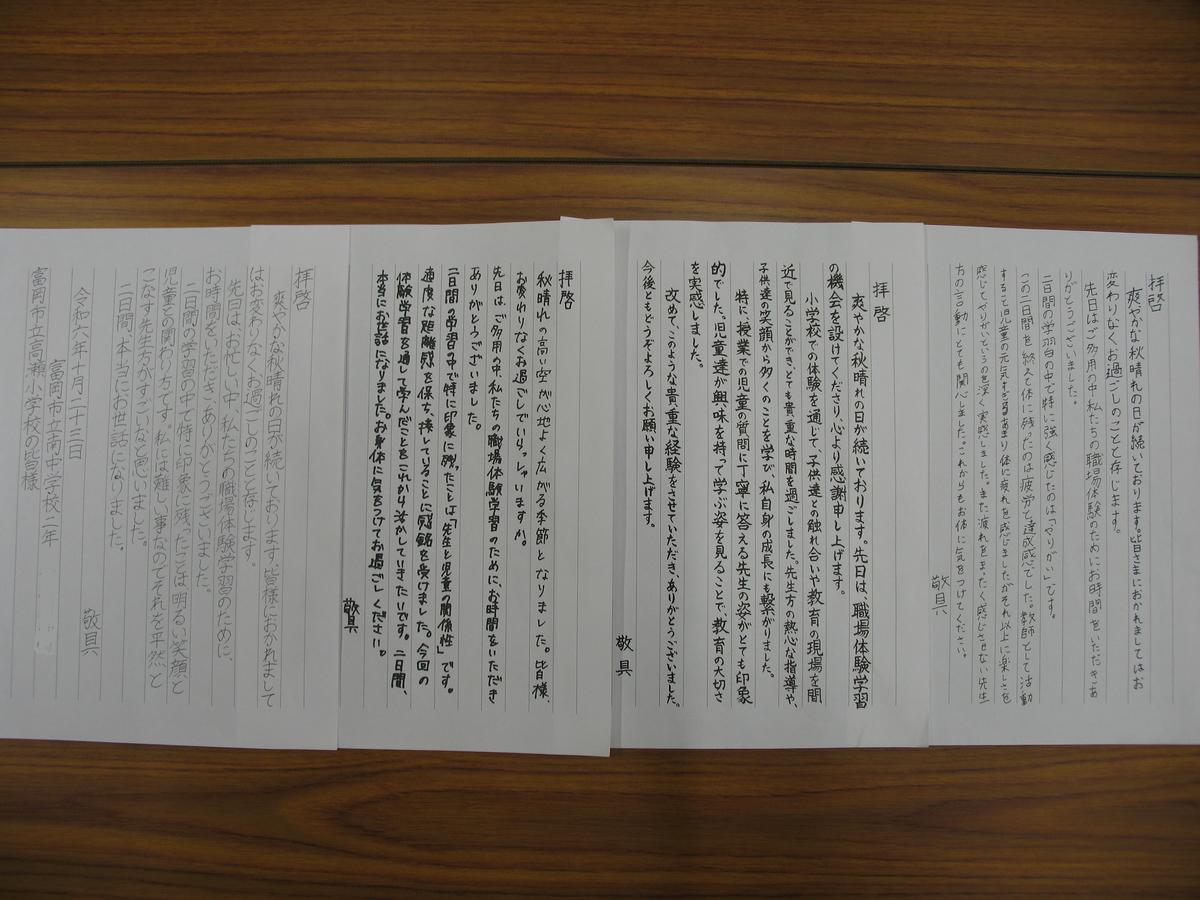 拝啓
爽やかな秋晴れの日が続いております。皆さまにおかれましてはお
変わりなくお過ごしのことと存じます。
先日はご多用の中私たちの職場体験のためにお時間をいただきあ
りがとうございました。
二日間の学習の中で特に強く感じたのは「やりがい」です。
この二日間を終えて体に残ったのは疲労と達成感でした。教師として活動
すること児童の元気すぎるあまり体に疲れを感じましたがそれ以上に楽しさを
感じてやりがいというのを深く実感しました。また疲れをまったく感じさせない先生
方の言動にとても関心しました。これからもお体に気をつけてください。
敬具
拝啓
爽やかな秋晴れの日が続いております。先日は、職場体験学習
の機会を設けてくださり、心より感謝申し上げます。
小学校での体験を通じて、子供達との触れ合いや教育の現場を間
近で見ることができ、とても貴重な時間を過ごしました。先生方の熱心な指導や、
子供達の笑顔から多くのことを学び、私自身の成長にも繋がりました。
特に、授業での児童の質問に丁寧に答える先生の姿がとても印象
的でした。児童達が興味を持って学ぶ姿を見ることで、教育の大切さ
を実感しました。
改めて、このような貴重な経験をさせていただき、ありがとうございました。
今後ともどうぞよろしくお願い申し上げます。
敬具
拝啓
秋晴れの高い空が心地よく広がる季節となりました。皆様、
お変わりなくお過ごしでいらっしゃいますか。
先日は、ご多用の中、私たちの職場体験学習のために、お時間をいただき
ありがとうございました。
二日間の学習の中で特に印象に残ったことは「先生と児童の関係性」です。
適度な距離感を保ち、接していることに感銘を受けました。今回の
体験学習を通して学んだことをこれから活かしていきたいです。二日間、
本当にお世話になりました。お身体に気をつけてお過ごしください。
敬具
拝啓
爽やかな秋晴れの日が続いております。皆様におかれまして
はお変わりなくお過ごしのことと存じます。
先日は、お忙しい中、私たちの職場体験学習のために、
お時間をいただき、ありがとうございました。
二日間の学習の中で特に印象に残ったことは明るい笑顔と
児童との関わり方です。私には難しい事なのでそれを平然と
こなす先生方がすごいなと思いました。
二日間、本当にお世話になりました。
敬具
令和六年十月二十三日
富岡市立南中学校二年
富岡市立高瀬小学校の皆様